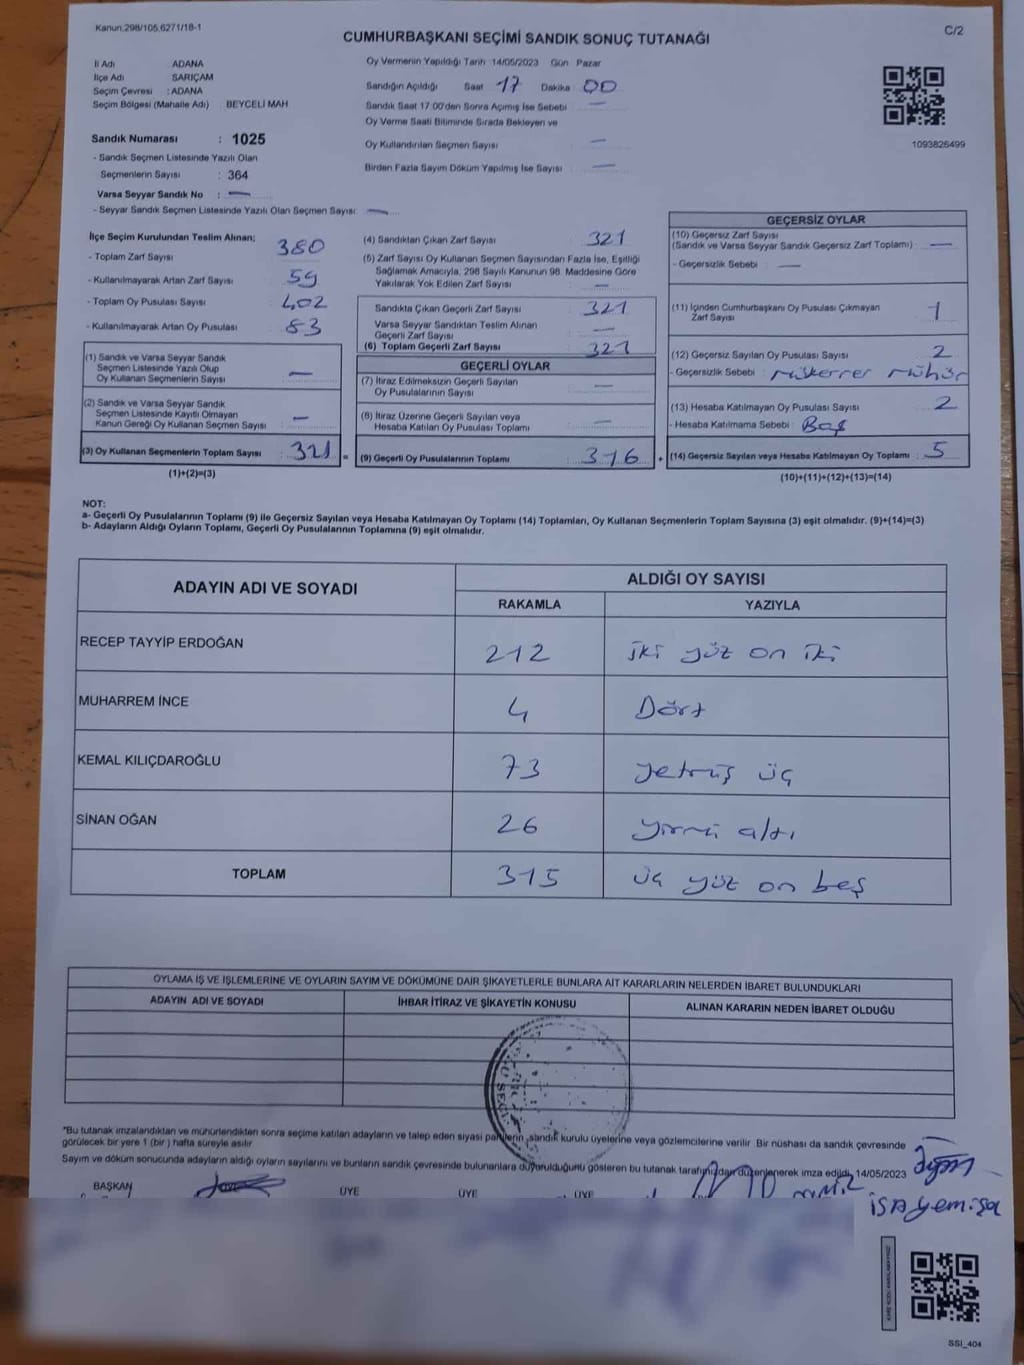 Kanun:298/105,6271/18-1
C/2
CUMHURBAŞKANI SEÇİMİ SANDIK SONUÇ TUTANAĞI
İl Adı ADANA
İlçe Adı SARIÇAM
Seçim Çevresi : ADANA
Seçim Bölgesi (Mahalle Adı) BEYCELİ MAH
Sandık Numarası : 1025
- Sandık Seçmen Listesinde Yazılı Olan
Seçmenlerin Sayısı : 364
Varsa Seyyar Sandık No : —
- Seyyar Sandık Seçmen Listesinde Yazılı Olan Seçmen Sayısı: —
Oy Vermenin Yapıldığı Tarih 14/05/2023 Gün Pazar
Sandığın Açıldığı Saat 17 Dakika 00
Sandık Saat 17:00'den Sonra Açımış İse Sebebi —
Oy Verme Saati Bitiminde Sırada Bekleyen ve
Oy Kullandırılan Seçmen Sayısı —
Birden Fazla Sayım Döküm Yapılmış İse Sayısı —
1093826499
İlçe Seçim Kurulundan Teslim Alınan;
- Toplam Zarf Sayısı 380
- Kullanılmayarak Artan Zarf Sayısı 59
- Toplam Oy Pusulası Sayısı 402
- Kullanılmayarak Artan Oy Pusulası 83
(1) Sandık ve Varsa Seyyar Sandık
Seçmen Listesinde Yazılı Olup
Oy Kullanan Seçmenlerin Sayısı —
(2) Sandık ve Varsa Seyyar Sandık
Seçmen Listesinde Kayıtlı Olmayan
Kanun Gereği Oy Kullanan Seçmen Sayısı —
(3) Oy Kullanan Seçmenlerin Toplam Sayısı : 321 =
(1)+(2)=(3)
(4) Sandıktan Çıkan Zarf Sayısı 321
(5) Zarf Sayısı Oy Kullanan Seçmen Sayısından Fazla İse, Eşitliği
Sağlamak Amacıyla, 298 Sayılı Kanunun 98. Maddesine Göre
Yakılarak Yok Edilen Zarf Sayısı —
Sandıkta Çıkan Geçerli Zarf Sayısı 321
Varsa Seyyar Sandıktan Teslim Alınan
Geçerli Zarf Sayısı —
(6) Toplam Geçerli Zarf Sayısı 321
GEÇERLİ OYLAR
(7) İtiraz Edilmeksizin Geçerli Sayılan
Oy Pusulalarının Sayısı —
(8) İtiraz Üzerine Geçerli Sayılan veya
Hesaba Katılan Oy Pusulaları Toplamı —
(9) Geçerli Oy Pusulalarının Toplamı : 316 +
GEÇERSİZ OYLAR
(10) Geçersiz Zarf Sayısı
(Sandık ve Varsa Seyyar Sandık Geçersiz Zarf Toplamı) : —
- Geçersizlik Sebebi : —
(11) İçinden Cumhurbaşkanı Oy Pusulası Çıkmayan
Zarf Sayısı 1
(12) Geçersiz Sayılan Oy Pusulası Sayısı 2
- Geçersizlik Sebebi : Mükerrer Mühür
(13) Hesaba Katılmayan Oy Pusulası Sayısı 2
- Hesaba Katılmama Sebebi : Boş
(14) Geçersiz Sayılan veya Hesaba Katılmayan Oy Toplamı : 5
(10)+(11)+(12)+(13)=(14)
NOT:
a- Geçerli Oy Pusulalarının Toplamı (9) ile Geçersiz Sayılan veya Hesaba Katılmayan Oy Toplamı (14) Toplamları, Oy Kullanan Seçmenlerin Toplam Sayısına (3) eşit olmalıdır. (9)+(14)=(3)
b- Adayların Aldığı Oyların Toplamı, Geçerli Oy Pusulalarının Toplamına (9) eşit olmalıdır.
ADAYIN ADI VE SOYADI ALDIĞI OY SAYISI
RAKAMLA YAZIYLA
RECEP TAYYİP ERDOĞAN 212 iki yüz on iki
MUHARREM İNCE 4 Dört
KEMAL KILIÇDAROĞLU 73 yetmiş üç
SİNAN OĞAN 26 yirmi altı
TOPLAM 315 üç yüz on beş
OYLAMA İŞ VE İŞLEMLERİNE VE OYLARIN SAYIM VE DÖKÜMÜNE DAİR ŞİKAYETLERLE BUNLARA AİT KARARLARIN NELERDEN İBARET BULUNDUKLARI
ADAYIN ADI VE SOYADI İHBAR İTİRAZ VE ŞİKAYETİN KONUSU ALINAN KARARIN NEDEN İBARET OLDUĞU
*Bu tutanak imzalandıktan ve mühürlendikten sonra seçime katılan adayların ve talep eden siyasi partilerin, sandık kurulu üyelerine veya gözlemcilerine verilir. Bir nüshası da sandık çevresinde
görülecek bir yere 1 (bir) hafta süreyle asılır
Sayım ve döküm sonucunda adayların aldığı oyların sayılarını ve bunların sandık çevresinde bulunanlara duyurulduğunu gösteren bu tutanak tarafımızdan düzenlenerek imza edildi. 14/05/2023
BAŞKAN ÜYE ÜYE ÜYE
SSI_404